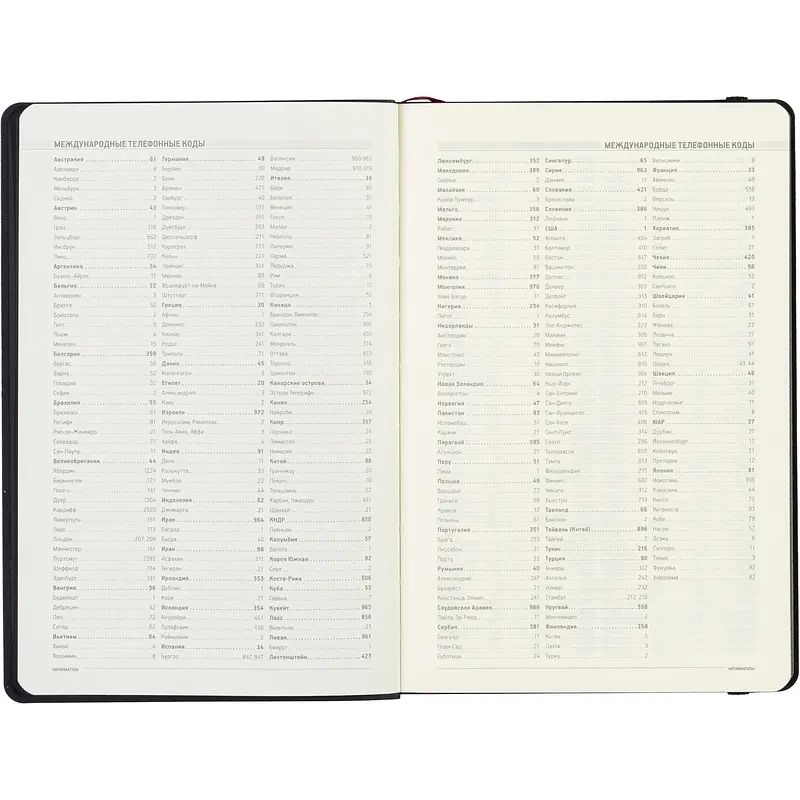 МЕЖДУНАРОДНЫЕ ТЕЛЕФОННЫЕ КОДЫ
Австралия 61
Аделаида 8
Канберра 2
Мельбурн 3
Сидней 2
Австрия 43
Вена 1
Грац 316
Зальцбург 662
Инсбрук 512
Линц 732
Аргентина 54
Буэнос-Айрес 11
Бельгия 32
Антверпен 3
Брюгге 50
Брюссель 2
Гент 9
Льеж 4
Мехелен 15
Болгария 359
Бургас 56
Варна 52
Пловдив 32
София 2
Бразилия 55
Бразилиа 61
Ресифи 81
Рио-де-Жанейро 21
Салвадор 71
Сан-Паулу 11
Великобритания 44
Абердин 1224
Бирмингем 121
Глазго 141
Дувр 1304
Кардифф 2920
Ливерпуль 151
Лидс 113
Лондон 207, 208
Манчестер 161
Портсмут 2392
Шеффилд 114
Эдинбург 131
Венгрия 36
Будапешт 1
Дебрецен 52
Печ 72
Сегед 62
Вьетнам 84
Ханой 4
Хошимин 8
Германия 49
Берлин 30
Бонн 228
Бремен 421
Гамбург 40
Ганновер 511
Дрезден 351
Дуйсбург 203
Дюссельдорф 211
Карлсруэ 721
Кельн 221
Лейпциг 341
Мюнхен 89
Франкфурт-на-Майне 69
Штутгарт 711
Греция 30
Афины 1
Домокос 232
Килкис 341
Родос 241
Триполи 71
Дания 45
Копенгаген 3
Египет 20
Александрия 3
Каир 2
Израиль 972
Иерусалим, Рамаллах 2
Тель-Авив, Яффа 3
Хайфа 4
Индия 91
Дели 11
Калькутта 33
Мумбаи 22
Ченнаи 44
Индонезия 62
Джакарта 21
Ирак 964
Багдад 1
Басра 40
Иран 98
Исфахан 311
Тегеран 21
Ирландия 353
Дублин 1
Корк 21
Исландия 354
Акурейри 461
Рейкьявик 5
Испания 34
Бургос 842, 947
Валенсия 960-963
Мадрид 910-918
Италия 39
Бари 80
Болонья 51
Венеция 41
Генуя 10
Милан 2
Неаполь 81
Палермо 91
Парма 521
Перуджа 75
Рим 6
Турин 11
Флоренция 55
Канада 1
Брандон, Виннипег 204
Гамильтон 905
Калгари 403
Монреаль 514
Оттава 613
Торонто 416
Эдмонтон 780
Канарские острова 34
Остров Тенерифе 922
Кения 254
Найроби 20
Кипр 357
Ларнака 24
Лимассол 25
Никосия 22
Китай 86
Гуанчжоу 20
Пекин 10
Тяньцзинь 22
Харбин, Чжаодун 451
Шанхай 21
КНДР 850
Пхеньян 2
Колумбия 57
Богота 1
Корея Южная 82
Сеул 2
Коста-Рика 506
Куба 53
Гавана 7
Кувейт 965
Лаос 856
Вьентьян 21
Ливан 961
Бейрут 1
Лихтенштейн 423
INFORMATION
МЕЖДУНАРОДНЫЕ ТЕЛЕФОННЫЕ КОДЫ
Люксембург 352
Македония 389
Скопье 2
Малайзия 60
Куала-Лумпур 3
Мальта 356
Марокко 212
Рабат 37
Мексика 52
Гвадалахара 33
Мехико 55
Монтеррей 81
Монако 377
Монголия 976
Улан-Батор 11
Нигерия 234
Лагос 1
Нидерланды 31
Амстердам 20
Гаага 70
Маастрихт 43
Роттердам 10
Утрехт 30
Новая Зеландия 64
Веллингтон 4
Норвегия 47
Пакистан 92
Исламабад 51
Карачи 21
Парагвай 595
Асунсьон 21
Перу 51
Лима 1
Польша 48
Варшава 22
Гданьск 58
Краков 12
Познань 61
Португалия 351
Брага 253
Лиссабон 21
Порту 22
Румыния 40
Александрия 247
Бухарест 21
Констанца, Олимп 241
Саудовская Аравия 966
Сербия 381
Белград 11
Нови-Сад 21
Суботица 24
Сингапур 65
Сирия 963
Дамаск 11
Словакия 421
Братислава 2
Словения 386
Любляна 1
США 1
Атланта 404
Балтимор 410
Бостон 617
Вашингтон 202
Даллас 972
Денвер 303
Детройт 313
Калифорния 310
Колумбус 614
Лос-Анджелес 323
Майами 305
Мемфис 901
Миннеаполис 612
Нашвилл 615
Новый Орлеан 504
Нью-Йорк 212
Сан-Антонио 210
Сан-Диего 619
Сан-Франциско 415
Сан-Хосе 408
Сент-Луис 314
Сиэтл 206
Таллахасси 850
Тампа 813
Филадельфия 215
Финикс 602
Чикаго 312
Хьюстон 713
Таиланд 66
Бангкок 2
Тайвань (Китай) 886
Тайпей 2
Тунис 216
Турция 90
Анкара 312
Анталья 242
Измир 232
Стамбул 212, 216
Уругвай 598
Монтевидео 2
Финляндия 358
Котка 5
Лахти 3
Турку 2
Хельсинки 9
Франция 33
Авиньон 49
Бордо 556
Версаль 13
Ницца 493
Париж 1
Хорватия 385
Загреб 1
Сплит 21
Чехия 420
Чили 56
Кальяпо 52
Сантьяго 2
Швейцария 41
Базель 61
Берн 31
Женева 22
Лозанна 21
Лугано 91
Люцерн 41
Цюрих 43, 44
Швеция 46
Гетеборг 31
Мальмё 40
Норрчёпинг 11
Стокгольм 8
ЮАР 27
Дурбан 31
Йоханнесбург 11
Кейптаун 21
Претория 12
Япония 81
Йокогама 965
Кавасаки 44
Киото 75
Китакюсю 93
Кобе 78
Нагоя 52
Осака 6
Саппоро 11
Токио 3
Фукуока 92
Хиросима 82
INFORMATION